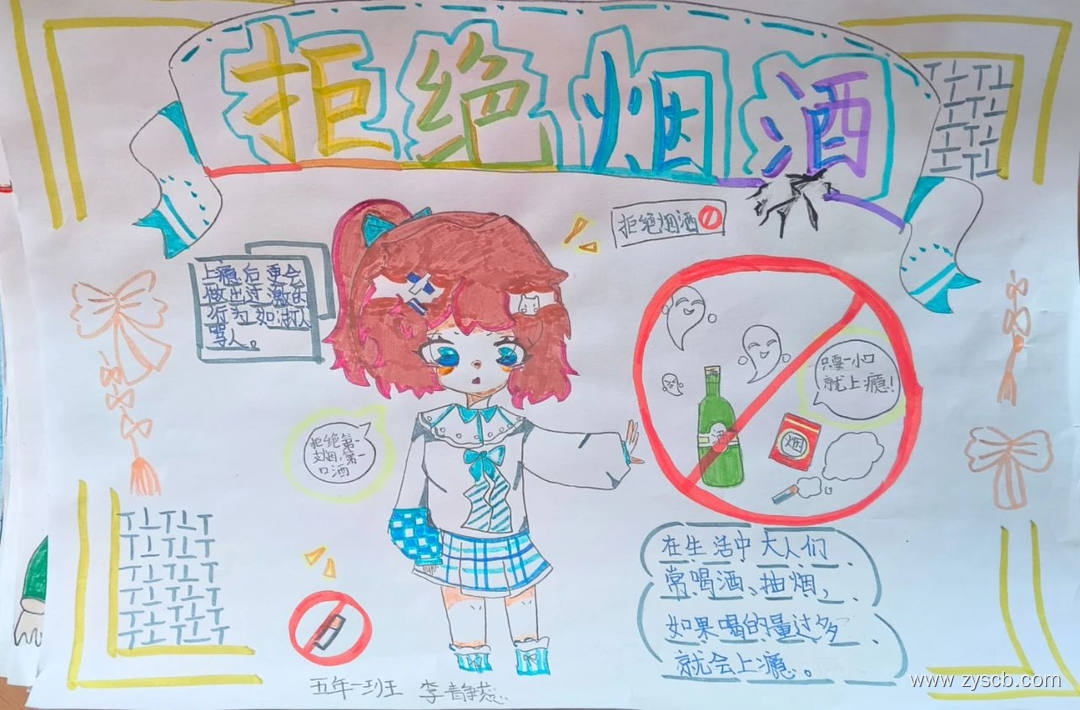 拒绝烟酒
拒绝烟酒
上瘾后更会
做出过激的
行为如:打人
骂人。
只要一小口
就上瘾!
酒
烟
拒绝第一
支烟,第一
口酒
在生活中大人们
常喝酒、抽烟,
如果喝的量过多
就会上瘾。
五年一班 李静
www.zyscb.com